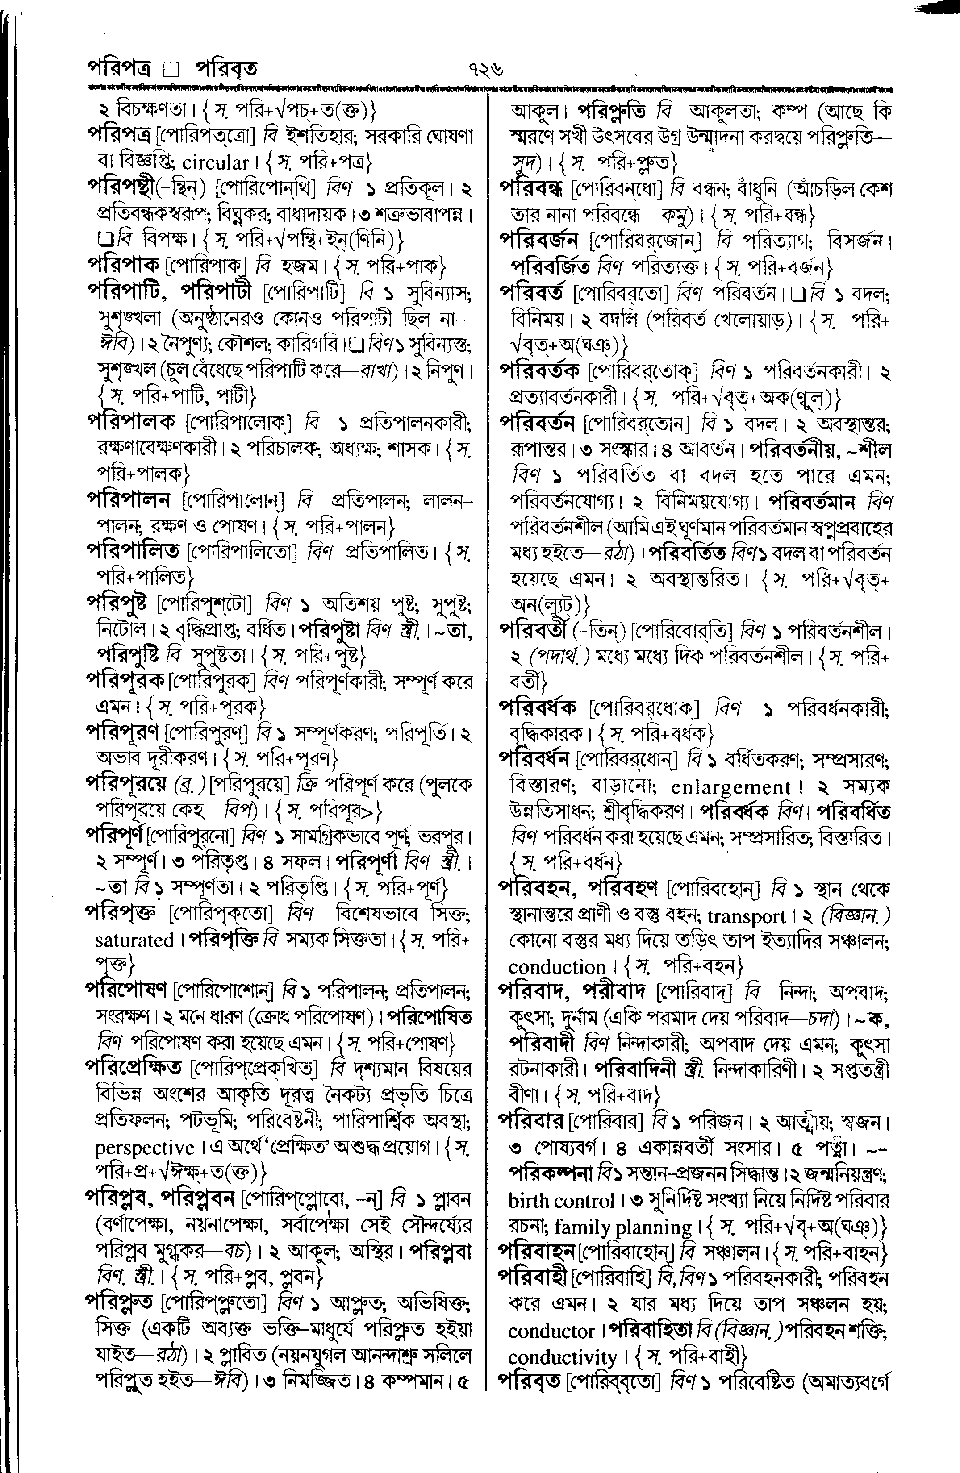 পরিপত্র □ পরিবৃত
৭২৬
২ বিচক্ষণতা। {স. পরি+√পচ+ত(ক্ত)}
পরিপত্র [পোরিপত্‌ত্রো] বি ইশতিহার; সরকারি ঘোষণা
বা বিজ্ঞপ্তি; circular। {স. পরি+পত্র}
পরিপন্থী(-ন্থিন্) [পোরিপোন্‌থি] বিণ ১ প্রতিকূল। ২
প্রতিবন্ধকস্বরূপ; বিঘ্নকর; বাধাদায়ক। ৩ শত্রুভাবাপন্ন।
❑বি বিপক্ষ। {স. পরি+√পন্থি+ইন্(ণিনি)}
পরিপাক [পোরিপাক্] বি হজম। {স. পরি+পাক}
পরিপাটি, পরিপাটী [পোরিপাটি] বি ১ সুবিন্যাস;
সুশৃঙ্খলা (অনুষ্ঠানেরও কোনও পরিপাটী ছিল না—
ঈবি)। ২ নৈপুণ্য; কৌশল; কারিগরি। ❑বিণ ১ সুবিন্যস্ত;
সুশৃঙ্খল (চুল বেঁধেছে পরিপাটি করে—রাখা)। ২ নিপুণ।
{স. পরি+পাটি, পাটী}
পরিপালক [পোরিপালোক্] বি ১ প্রতিপালনকারী;
রক্ষণাবেক্ষণকারী। ২ পরিচালক; অধ্যক্ষ; শাসক। {স.
পরি+পালক}
পরিপালন [পোরিপালোন্] বি প্রতিপালন; লালন-
পালন; রক্ষণ ও পোষণ। {স. পরি+পালন}
পরিপালিত [পোরিপালিতো] বিণ প্রতিপালিত। {স.
পরি+পালিত}
পরিপুষ্ট [পোরিপুশ্‌টো] বিণ ১ অতিশয় পুষ্ট; সুপুষ্ট;
নিটোল। ২ বৃদ্ধিপ্রাপ্ত; বর্ধিত। পরিপুষ্টা বিণ স্ত্রী.। ~তা,
পরিপুষ্টি বি সুপুষ্টতা। {স. পরি+পুষ্ট}
পরিপূরক [পোরিপুরক্] বিণ পরিপূর্ণকারী; সম্পূর্ণ করে
এমন। {স. পরি+পূরক}
পরিপূরণ [পোরিপুরণ্] বি ১ সম্পূর্ণকরণ; পরিপূর্তি। ২
অভাব দূরীকরণ। {স. পরি+পূরণ}
পরিপূরয়ে (ব্র.) [পরিপুরয়ে] ক্রি পরিপূর্ণ করে (পুলকে
পরিপূরয়ে কেহ বিপ)। {স. পরিপূর>}
পরিপূর্ণ [পোরিপুর্‌নো] বিণ ১ সামগ্রিকভাবে পূর্ণ, ভরপুর।
২ সম্পূর্ণ। ৩ পরিতৃপ্ত। ৪ সফল। পরিপূর্ণা বিণ স্ত্রী.।
~তা বি ১ সম্পূর্ণতা। ২ পরিতৃপ্তি। {স. পরি+পূর্ণ}
পরিপৃক্ত [পোরিপৃক্‌তো] বিণ বিশেষভাবে সিক্ত;
saturated। পরিপৃক্তি বি সম্যক সিক্ততা। {স. পরি+
পৃক্ত}
পরিপোষণ [পোরিপোশোন্] বি ১ পরিপালন; প্রতিপালন;
সংরক্ষণ। ২ মনে ধারণ (ক্রোধ পরিপোষণ)। পরিপোষিত
বিণ পরিপোষণ করা হয়েছে এমন। {স. পরি+পোষণ}
পরিপ্রেক্ষিত [পোরিপ্‌প্রেক্‌খিত্] বি দৃশ্যমান বিষয়ের
বিভিন্ন অংশের আকৃতি দূরত্ব নৈকট্য প্রভৃতি চিত্রে
প্রতিফলন; পটভূমি; পরিবেষ্টনী; পারিপার্শ্বিক অবস্থা;
perspective। এ অর্থে ‘প্রেক্ষিত’ অশুদ্ধ প্রয়োগ। {স.
পরি+প্র+√ঈক্ষ্+ত(ক্ত)}
পরিপ্লব, পরিপ্লবন [পোরিপ্‌প্লোবো, -ন্] বি ১ প্লাবন
(বর্ণাপেক্ষা, নয়নাপেক্ষা, সর্বাপেক্ষা সেই সৌন্দর্য্যের
পরিপ্লব মুগ্ধকর—বচ)। ২ আকুল; অস্থির। পরিপ্লবা
বিণ. স্ত্রী.। {স. পরি+প্লব, প্লবন}
পরিপ্লুত [পোরিপ্‌প্লুতো] বিণ ১ আপ্লুত; অভিষিক্ত;
সিক্ত (একটি অব্যক্ত ভক্তি-মাধুর্যে পরিপ্লুত হইয়া
যাইত—রঠা)। ২ প্লাবিত (নয়নযুগল আনন্দাশ্রু সলিলে
পরিপ্লুত হইত—ঈবি)। ৩ নিমজ্জিত। ৪ কম্পমান। ৫
আকুল। পরিপ্লুতি বি আকুলতা; কম্প (আছে কি
স্মরণে সখী উৎসবের উগ্র উন্মাদনা করদ্বয়ে পরিপ্লুতি—
সুদ)। {স. পরি+প্লুত}
পরিবন্ধ [পোরিবন্‌ধো] বি বন্ধন; বাঁধুনি (আঁচড়িল কেশ
তার নানা পরিবন্ধে কমু)। {স. পরি+বন্ধ}
পরিবর্জন [পোরিবর্‌জোন্] বি পরিত্যাগ; বিসর্জন।
পরিবর্জিত বিণ পরিত্যক্ত। {স. পরি+বর্জন}
পরিবর্ত [পোরিবর্‌তো] বিণ পরিবর্তন। ❑বি ১ বদল;
বিনিময়। ২ বদলি (পরিবর্ত খেলোয়াড়)। {স. পরি+
√বৃত্+অ(ঘঞ্)}
পরিবর্তক [পোরিবর্‌তোক্] বিণ ১ পরিবর্তনকারী। ২
প্রত্যাবর্তনকারী। {স. পরি+√বৃত্+অক(ণ্বুল্)}
পরিবর্তন [পোরিবর্‌তোন্] বি ১ বদল। ২ অবস্থান্তর;
রূপান্তর। ৩ সংস্কার। ৪ আবর্তন। পরিবর্তনীয়, ~শীল
বিণ ১ পরিবর্তিত বা বদল হতে পারে এমন;
পরিবর্তনযোগ্য। ২ বিনিময়যোগ্য। পরিবর্তমান বিণ
পরিবর্তনশীল (আমি এই ঘূর্ণমান পরিবর্তমান স্বপ্নপ্রবাহের
মধ্য হইতে—রঠা)। পরিবর্তিত বিণ ১ বদল বা পরিবর্তন
হয়েছে এমন। ২ অবস্থান্তরিত। {স. পরি+√বৃত্+
অন(ল্যুট)}
পরিবর্তী (-তিন্) [পোরিবোর্‌তি] বিণ ১ পরিবর্তনশীল।
২ (পদার্থ.) মধ্যে মধ্যে দিক পরিবর্তনশীল। {স. পরি+
বর্তী}
পরিবর্ধক [পোরিবর্‌ধোক্] বিণ ১ পরিবর্ধনকারী;
বৃদ্ধিকারক। {স. পরি+বর্ধক}
পরিবর্ধন [পোরিবর্‌ধোন্] বি ১ বর্ধিতকরণ; সম্প্রসারণ;
বিস্তারণ; বাড়ানো; enlargement। ২ সম্যক
উন্নতিসাধন; শ্রীবৃদ্ধিকরণ। পরিবর্ধক বিণ। পরিবর্ধিত
বিণ পরিবর্ধন করা হয়েছে এমন; সম্প্রসারিত; বিস্তারিত।
{স. পরি+বর্ধন}
পরিবহন, পরিবহণ [পোরিবহোন্] বি ১ স্থান থেকে
স্থানান্তরে প্রাণী ও বস্তু বহন; transport। ২ (বিজ্ঞান.)
কোনো বস্তুর মধ্য দিয়ে তড়িৎ তাপ ইত্যাদির সঞ্চালন;
conduction। {স. পরি+বহন}
পরিবাদ, পরীবাদ [পোরিবাদ্] বি নিন্দা; অপবাদ;
কুৎসা; দুর্নাম (একি পরমাদ দেয় পরিবাদ—চদা)। ~ক,
পরিবাদী বিণ নিন্দাকারী; অপবাদ দেয় এমন; কুৎসা
রটনাকারী। পরিবাদিনী স্ত্রী. নিন্দাকারিণী। ২ সপ্ততন্ত্রী
বীণা। {স. পরি+বাদ}
পরিবার [পোরিবার্] বি ১ পরিজন। ২ আত্মীয়; স্বজন।
৩ পোষ্যবর্গ। ৪ একান্নবর্তী সংসার। ৫ পত্নী। ~-
পরিকল্পনা বি ১ সন্তান-প্রজনন সিদ্ধান্ত। ২ জন্মনিয়ন্ত্রণ;
birth control। ৩ সুনির্দিষ্ট সংখ্যা নিয়ে নির্দিষ্ট পরিবার
রচনা; family planning। {স. পরি+√বৃ+অ(ঘঞ্)}
পরিবাহন [পোরিবাহোন্] বি সঞ্চালন। {স. পরি+বাহন}
পরিবাহী [পোরিবাহি] বি, বিণ ১ পরিবহনকারী; পরিবহন
করে এমন। ২ যার মধ্য দিয়ে তাপ সঞ্চলন হয়;
conductor। পরিবাহিতা বি (বিজ্ঞান.) পরিবহন শক্তি;
conductivity। {স. পরি+বাহী}
পরিবৃত [পোরিব্‌বৃতো] বিণ ১ পরিবেষ্টিত (অমাত্যবর্গে